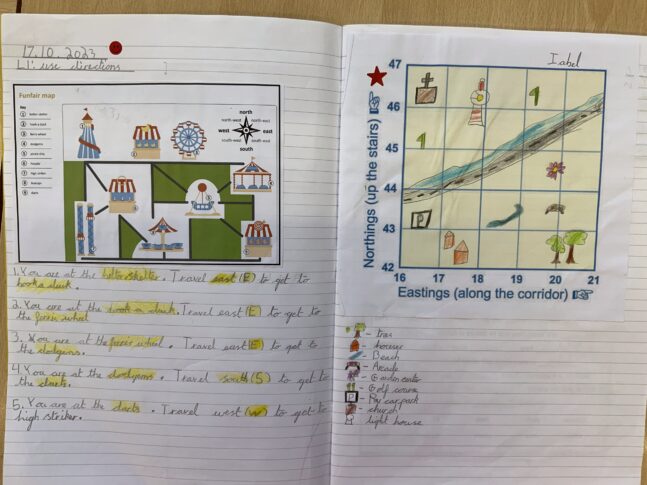 17.10.2023
LI: use directions
Funfair map
Key
1 helter-skelter
2 hook a duck
3 ferris wheel
4 dodgems
9 darts
north
north-west north-east
west east
south-west south-east
south
1. You are at the helter skelter. Travel east (E) to get to
hook a duck.
2. You are at the hook a duck. Travel east (E) to get to
the ferris wheel
3. You are at the ferris wheel. Travel east (E) to get to
the dodgems.
4 You are at the dodgems. Travel south (S) to get to
the darts.
5. You are at the darts. Travel west (W) to get to
high striker.
47
46
45
44
43
42
16 17 18 19 20 21
Northings (up the stairs)
Eastings (along the corridor)
P
- Beach
- Arcade
- Golf course
P - Pay car park
- light house